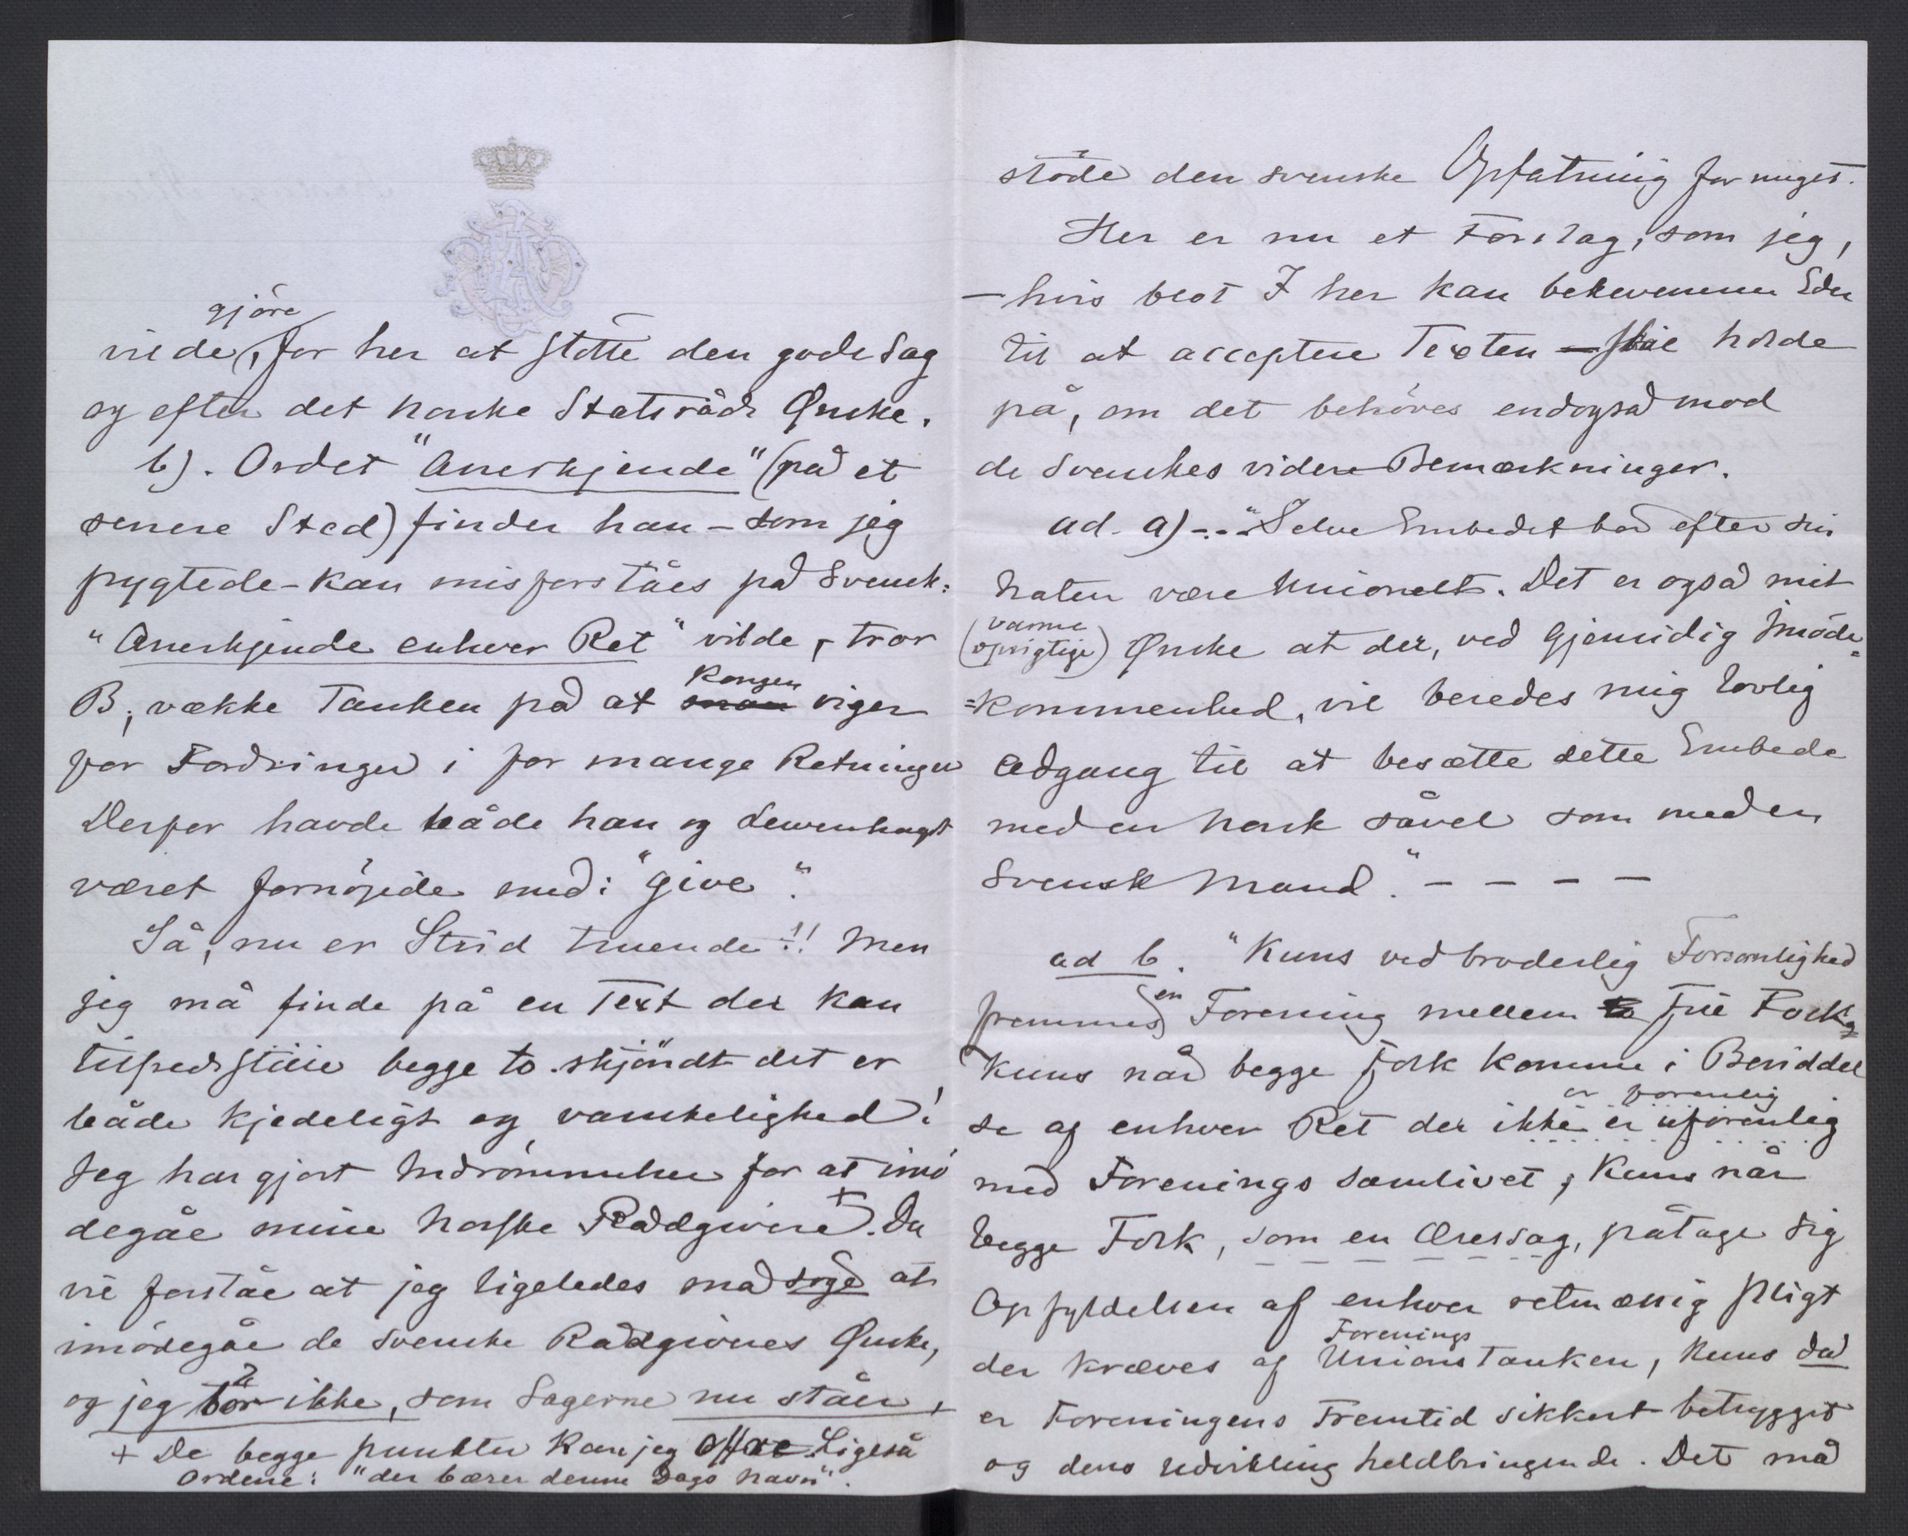 gjöre
vilde, for her at støtte den gode Sag
og efter det norske Statsråds Ønske.
b). Ordet "Anerkjende" (på et
senere Sted) finder han – som jeg
frygtede – kan misforståes på Svensk:
"Anerkjende enhver Ret" vilde, tror
Kongen
B, vække Tanken på at man viger
for Fordringer i for mange Retninger
Derfor havde både han og Lewenhaupt
været fornöjede med: "give".
Så, nu er Strid truende!! Men
jeg må finde på en Text der kan
tilfredsstille begge to. skjöndt det er
både kjedeligt og vanskelighed!
Jeg har gjort Indrömmelser for at imö
degåe mine norske Rådgivere +. Du
vil forståe at jeg ligeledes må søge at
imödegåe de svenske Rådgiveres Ønske,
og jeg tör ikke, som Sagerne nu ståer,
+ De begge punkter kan jeg Ligeså
Ordene: "der bærer denne Dags Navn".
støde den svenske Opfatning for meget.
Her er nu et Forslag, som jeg,
– hvis blot I her kan bekvemme Eder
til at acceptere Texten – skal holde
på, om det behöves endogså mod
de Svenskes videre Bemærkninger.
ad. a) -..- "Selve Embedet bör efter sin
Natur være Unionelt. Det er også mit
varme
(oprigtige) Ønske at der, ved gjensidig Imöde=
=kommenhed, vil beredes mig lovlig
Adgang til at besætte dette Embede
med en Norsk såvel som med en
Svensk Mand." – – – –
ad b. "Kuns ved broderlig Forsonlighed
en
fremmes Forening mellem to frie Folk,
Kuns når begge Folk komme i Besiddel
er forenlig
se af enhver Ret der ikke er uforenlig
med Forenings samlivet; Kuns når
begge Folk, som en Æressag, påtage sig
Opfyldelsen af enhver retmæssig Pligt
Forenings
der kræves af Unions Tanken, Kuns da
er Foreningens Fremtid sikkert betrygget
og dens Udvikling heldbringende. Det må